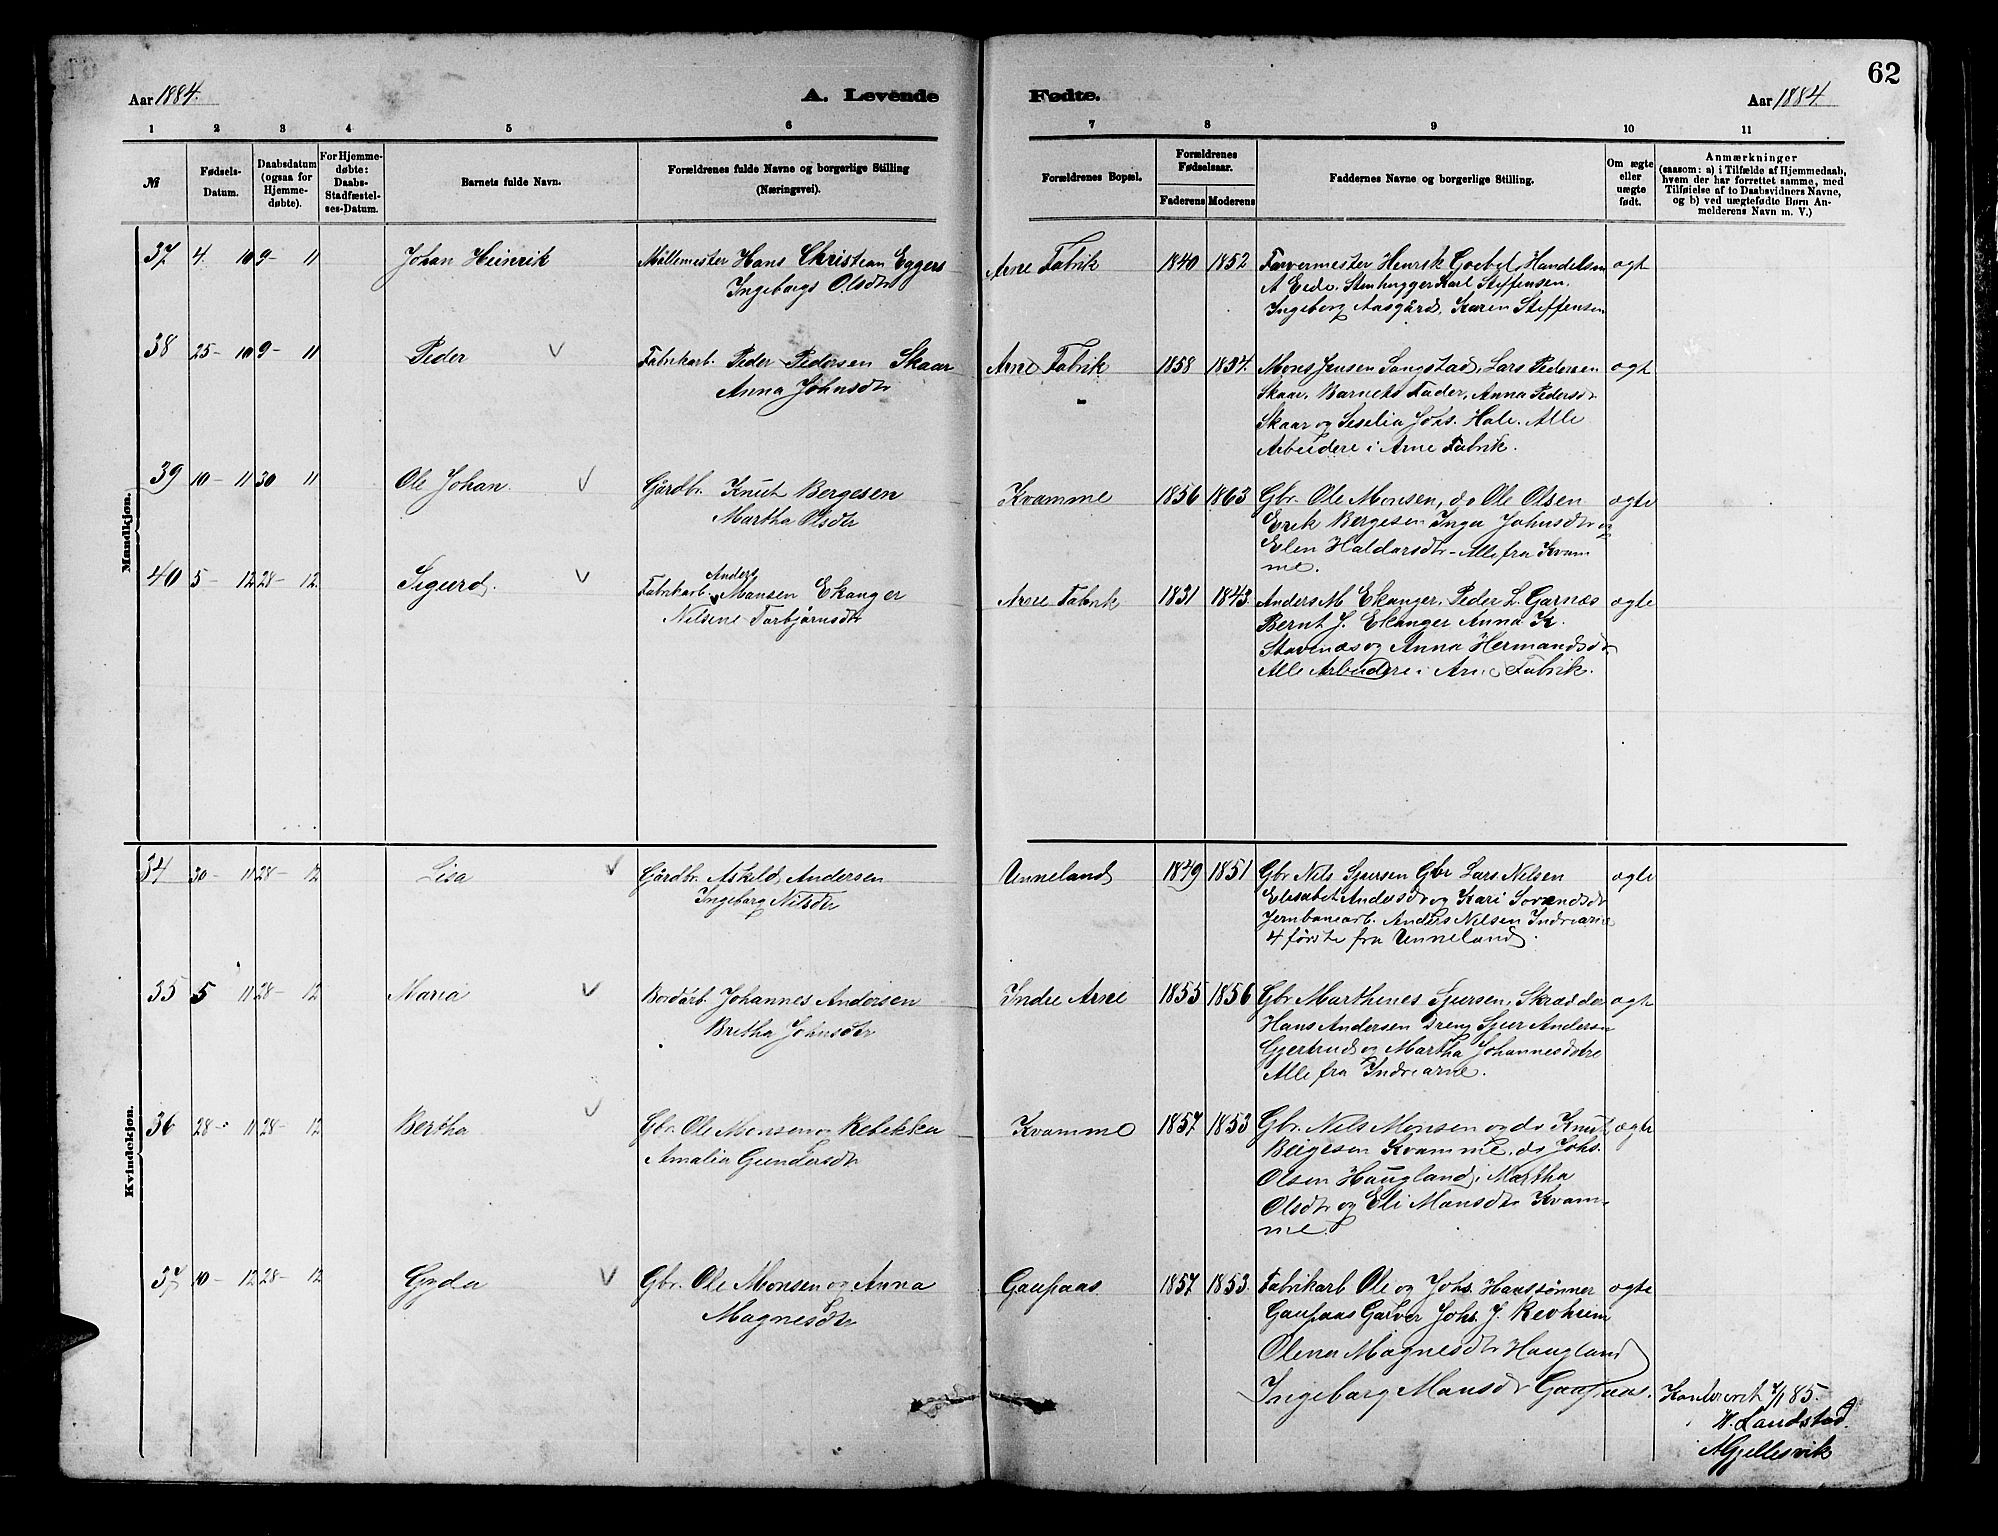 62
Aar 1884.
A. Levende Fødte.
Aar 1884
1 2 3 4 5 6 7 8 9 10 11
№
Fødsels-
Datum.
Daabsdatum
(ogsaa for
Hjemme-
døbte).
For Hjemme-
døbte:
Daabs-
Stadfæstel-
ses-Datum.
Barnets fulde Navn.
Forældrenes fulde Navne og borgerlige Stilling
(Næringsvei).
Forældrenes Bopæl.
Forældrenes
Fødselsaar.
Faderens Moderens
Faddernes Navne og borgerlige Stilling.
Om ægte
eller
uægte
født.
Anmærkninger
(saasom: a) i Tilfælde af Hjemmedaab,
hvem der har forrettet samme, med
Tilføielse af to Daabsvidners Navne,
og b) ved uægtefødte Børn An-
melderens Navn m. V.)
Mandkjøn.
37 4 10 9- 11 Johan Heinrik Møllemester Hans Christian Eggers Arne Fabrik 1840 1852 Farvermester Henrik Goebel, Handelsm ægt
Ingeborg Olsdtr
A Eide, Stenhugger Karl Steffensen.
Ingeborg Aasgård, Karen Steffensen
38 25- 10 9- 11 Peder V Fabrikarb. Peder Pedersen Skaar Arne Fabrik 1858 1854. Mons Jensen Langstad, Lars Pedersen ægt
Anna Johnsdtr
Skaar, Barnets Fader, Anna Pedersdtr
Skaar og Sesilia Johs. Hale. Alle
Arbeidere i Arne Fabrik.
39 10- 11 30 11 Ole Johan. V Gårdbr. Knut Bergesen Kvamme 1856 1863 Gbr. Ole Monsen, do Ole Olsen ægte
Martha Olsdtr
Erik Bergesen Inga Johnsdtr og
Elen Haldorsdtr - Alle fra Kvam
me.
40 5- 12 28- 12. Sigurd. V Fabrikarb. Anders Mansen Ekanger Arne Fabrik 1831 1843. Anders M Ekanger, Peder L. Garnæs ægte
Nilsine Tarbjørnsdtr
Bernt J. Ekanger Anna K.
Stavenæs og Anna Hermandsdtr
Alle Arbeidere i Arne Fabrik.
Kvindekjøn.
34 30- 11 28- 12 Lisa V Gårdbr. Askild Andersen Unneland 1849 1851 Gbr Nils Sjursen Gbr Lars Nilsen ægte
Ingeborg Nilsdtr
Elisabet Andersdtr og Kari Sorændsdtr
Jernbanearb. Anders Nilsen Indrearne
4 første fra Unneland.
35 5 11 28- 12 Maria V Bordarb Johannes Andersen Indre Arne 1855 1856 Gbr Marthenes Sjursen, Skrædder ægt
Bretha Johnsdtr
Hans Andersen Dreng Sjur Andersen
Gjertrud og Martha Johannesdøtre
Alle fra Indrearne.
36 28- 11 28- 12 Bertha V Gbr. Ole Monsen og Rebekka Kvamme 1857 1853 Gbr. Nils Monsen og do Knut ægte
Amalia Gundersdtr
Beigesen Kvamme, do Johs.
Olsen Haugland, Martha
Olsdtr og Eli Mansdtr Kvam-
me.
37 10- 12 28- 12 Gyda V Gbr. Ole Monsen og Anna Gaupaas 1857 1853. Fabrikarb Ole og Johs. Hanssønner ægte
Magnesdtr
Gaupaas Garver Johs. J. Revheim
Olena Magnesdtr Haugland
Ingeborg Mansdtr Gaupaas.
Konfereret 4/1 85.
W. Landstad.
A Gjellesvik